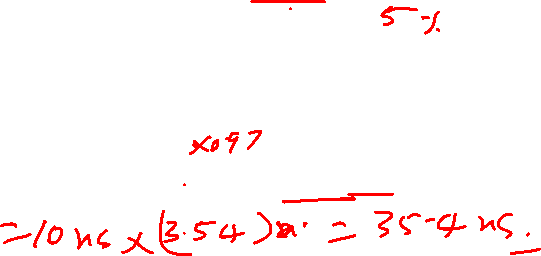 5%
x097
=10ns x (3.54) = 35.4 ns.